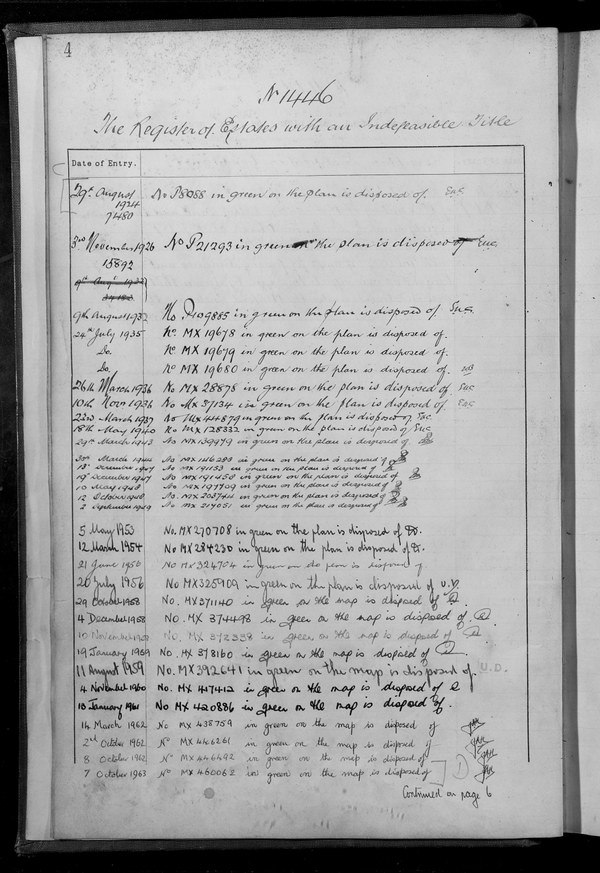 4
No 1446
The Register of Estates with an Indefeasible Title
Date of Entry.
29th August No P8988 in green on the plan is disposed of.
1924
7480
3rd November 1926 No P21293 in green on the plan is disposed of
15892
9th August 1932 No. P109885 in green on the plan is disposed of
24th July 1935 No MX 19678 in green on the plan is disposed of.
Do. No MX 19679 in green on the plan is disposed of.
Do. No MX 19680 in green on the plan is disposed of.
26th March 1936 No MX 28878 in green on the plan is disposed of
10th Novr 1936 No MX 37134 in green on the plan is disposed of
22nd March 1937 No MX 44879 in green on the plan is disposed of
18th May 1940 No MX 128332 in green on the plan is disposed of
March 1943 No MX 139979 in green on the plan is disposed of
March 1944 No MX 146283 in green on the plan is disposed of
December 1947 No MX 191153 in green on the plan is disposed of
19 December 1947 No MX 191450 in green on the plan is disposed of
10 May 1948 No MX 197909 in green on the plan is disposed of
12 October 1948 No. MX 203744 in green on the plan is disposed of
2 September 1949 No MX 217051 in green on the plan is disposed of
5 May 1953 No. MX 270708 in green on the plan is disposed of
12 March 1954 No. MX 284230 in green on the plan is disposed of
21 June 1956 No MX 324704 in green on the plan is disposed of
20 July 1956 No MX 325909 in green on the plan is disposed of U.D.
29 October 1958 No. MX 371140 in green on the map is disposed of
4 December 1958 No. MX 374498 in green on the map is disposed of.
10 November 1958 No. MX 372338 in green on the map is disposed of
19 January 1959 No. MX 378160 in green on the map is disposed of
11 August 1959 No. MX 392641 in green on the map is disposed of. U.D.
4 November 1960 No. MX 417412 in green on the map is disposed of
10 January 1961 No MX 420886 in green on the map is disposed of.
14 March 1962 No MX 438759 in green on the map is disposed of
2nd October 1962 No MX 446261 in green on the map is disposed of
8 October 1962 No MX 446492 in green on the map is disposed of
7 October 1963 No MX 460062 in green on the map is disposed of
Continued on page 6